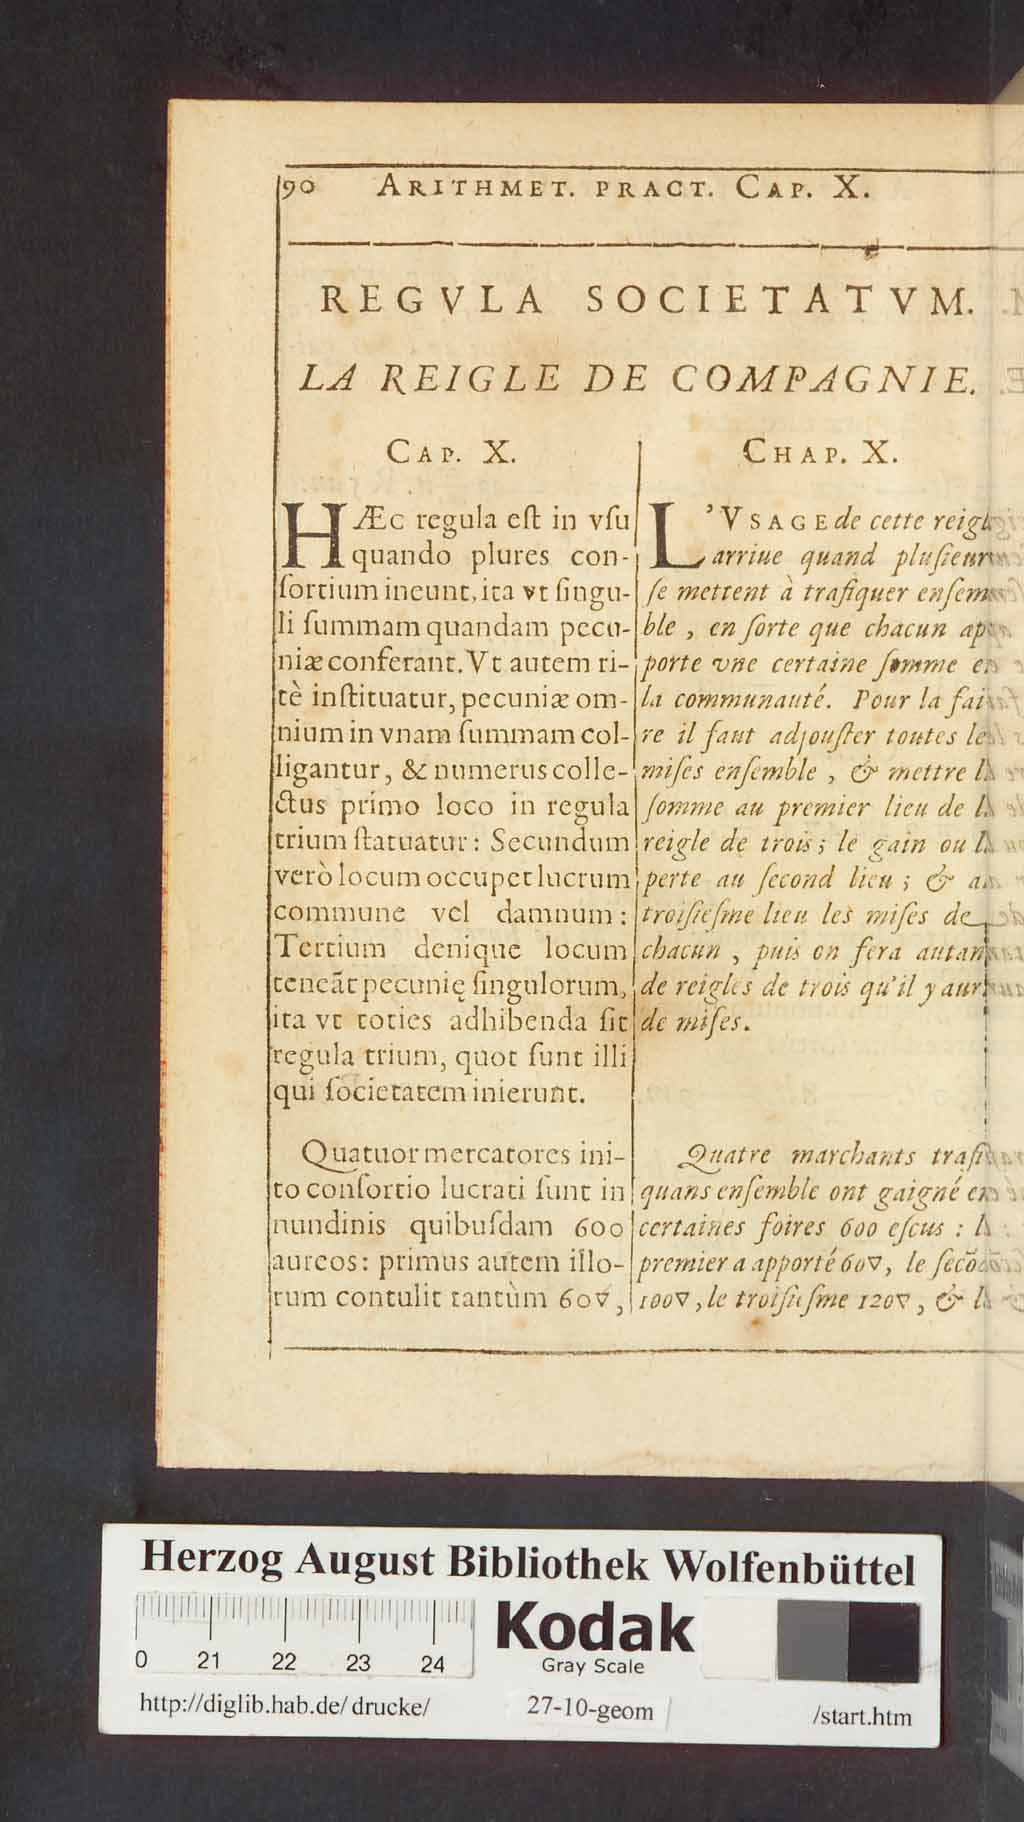 90 ARITHMET. PRACT. CAP. X.
REGVLA SOCIETATVM.
LA REIGLE DE COMPAGNIE.
CAP. X.
HÆC regula eſt in vſu
quando plures con-
ſortium ineunt, ita vt ſingu-
li ſummam quandam pecu-
niæ conferant. Vt autem ri-
tè inſtituatur, pecuniæ om-
nium in vnam ſummam col-
ligantur, & numerus colle-
ctus primo loco in regula
trium ſtatuatur: Secundum
verò locum occupet lucrum
commune vel damnum:
Tertium denique locum
teneãt pecunię ſingulorum,
ita vt toties adhibenda ſit
regula trium, quot ſunt illi
qui ſocietatem inierunt.
Quatuor mercatores ini-
to conſortio lucrati ſunt in
nundinis quibuſdam 600
aureos: primus autem illo-
rum contulit tantùm 60▽,
CHAP. X.
L'VSAGE de cette reigle
arriue quand pluſieurs
ſe mettent à trafiquer enſem-
ble, en ſorte que chacun ap-
porte vne certaine ſomme en
la communauté. Pour la fai-
re il faut adjouſter toutes les
miſes enſemble, & mettre la
ſomme au premier lieu de la
reigle de trois; le gain ou la
perte au ſecond lieu; & au
troiſieſme lieu les miſes de
chacun, puis on fera autant
de reigles de trois qu'il y aura
de miſes.
Quatre marchants trafi-
quans enſemble ont gaigné en
certaines foires 600 eſcus: le
premier a apporté 60▽, le ſecõd
100▽, le troiſieſme 120▽, & le
Herzog August Bibliothek Wolfenbüttel
0 21 22 23 24
Kodak
Gray Scale
http://diglib.hab.de/drucke/ 27-10-geom /start.htm